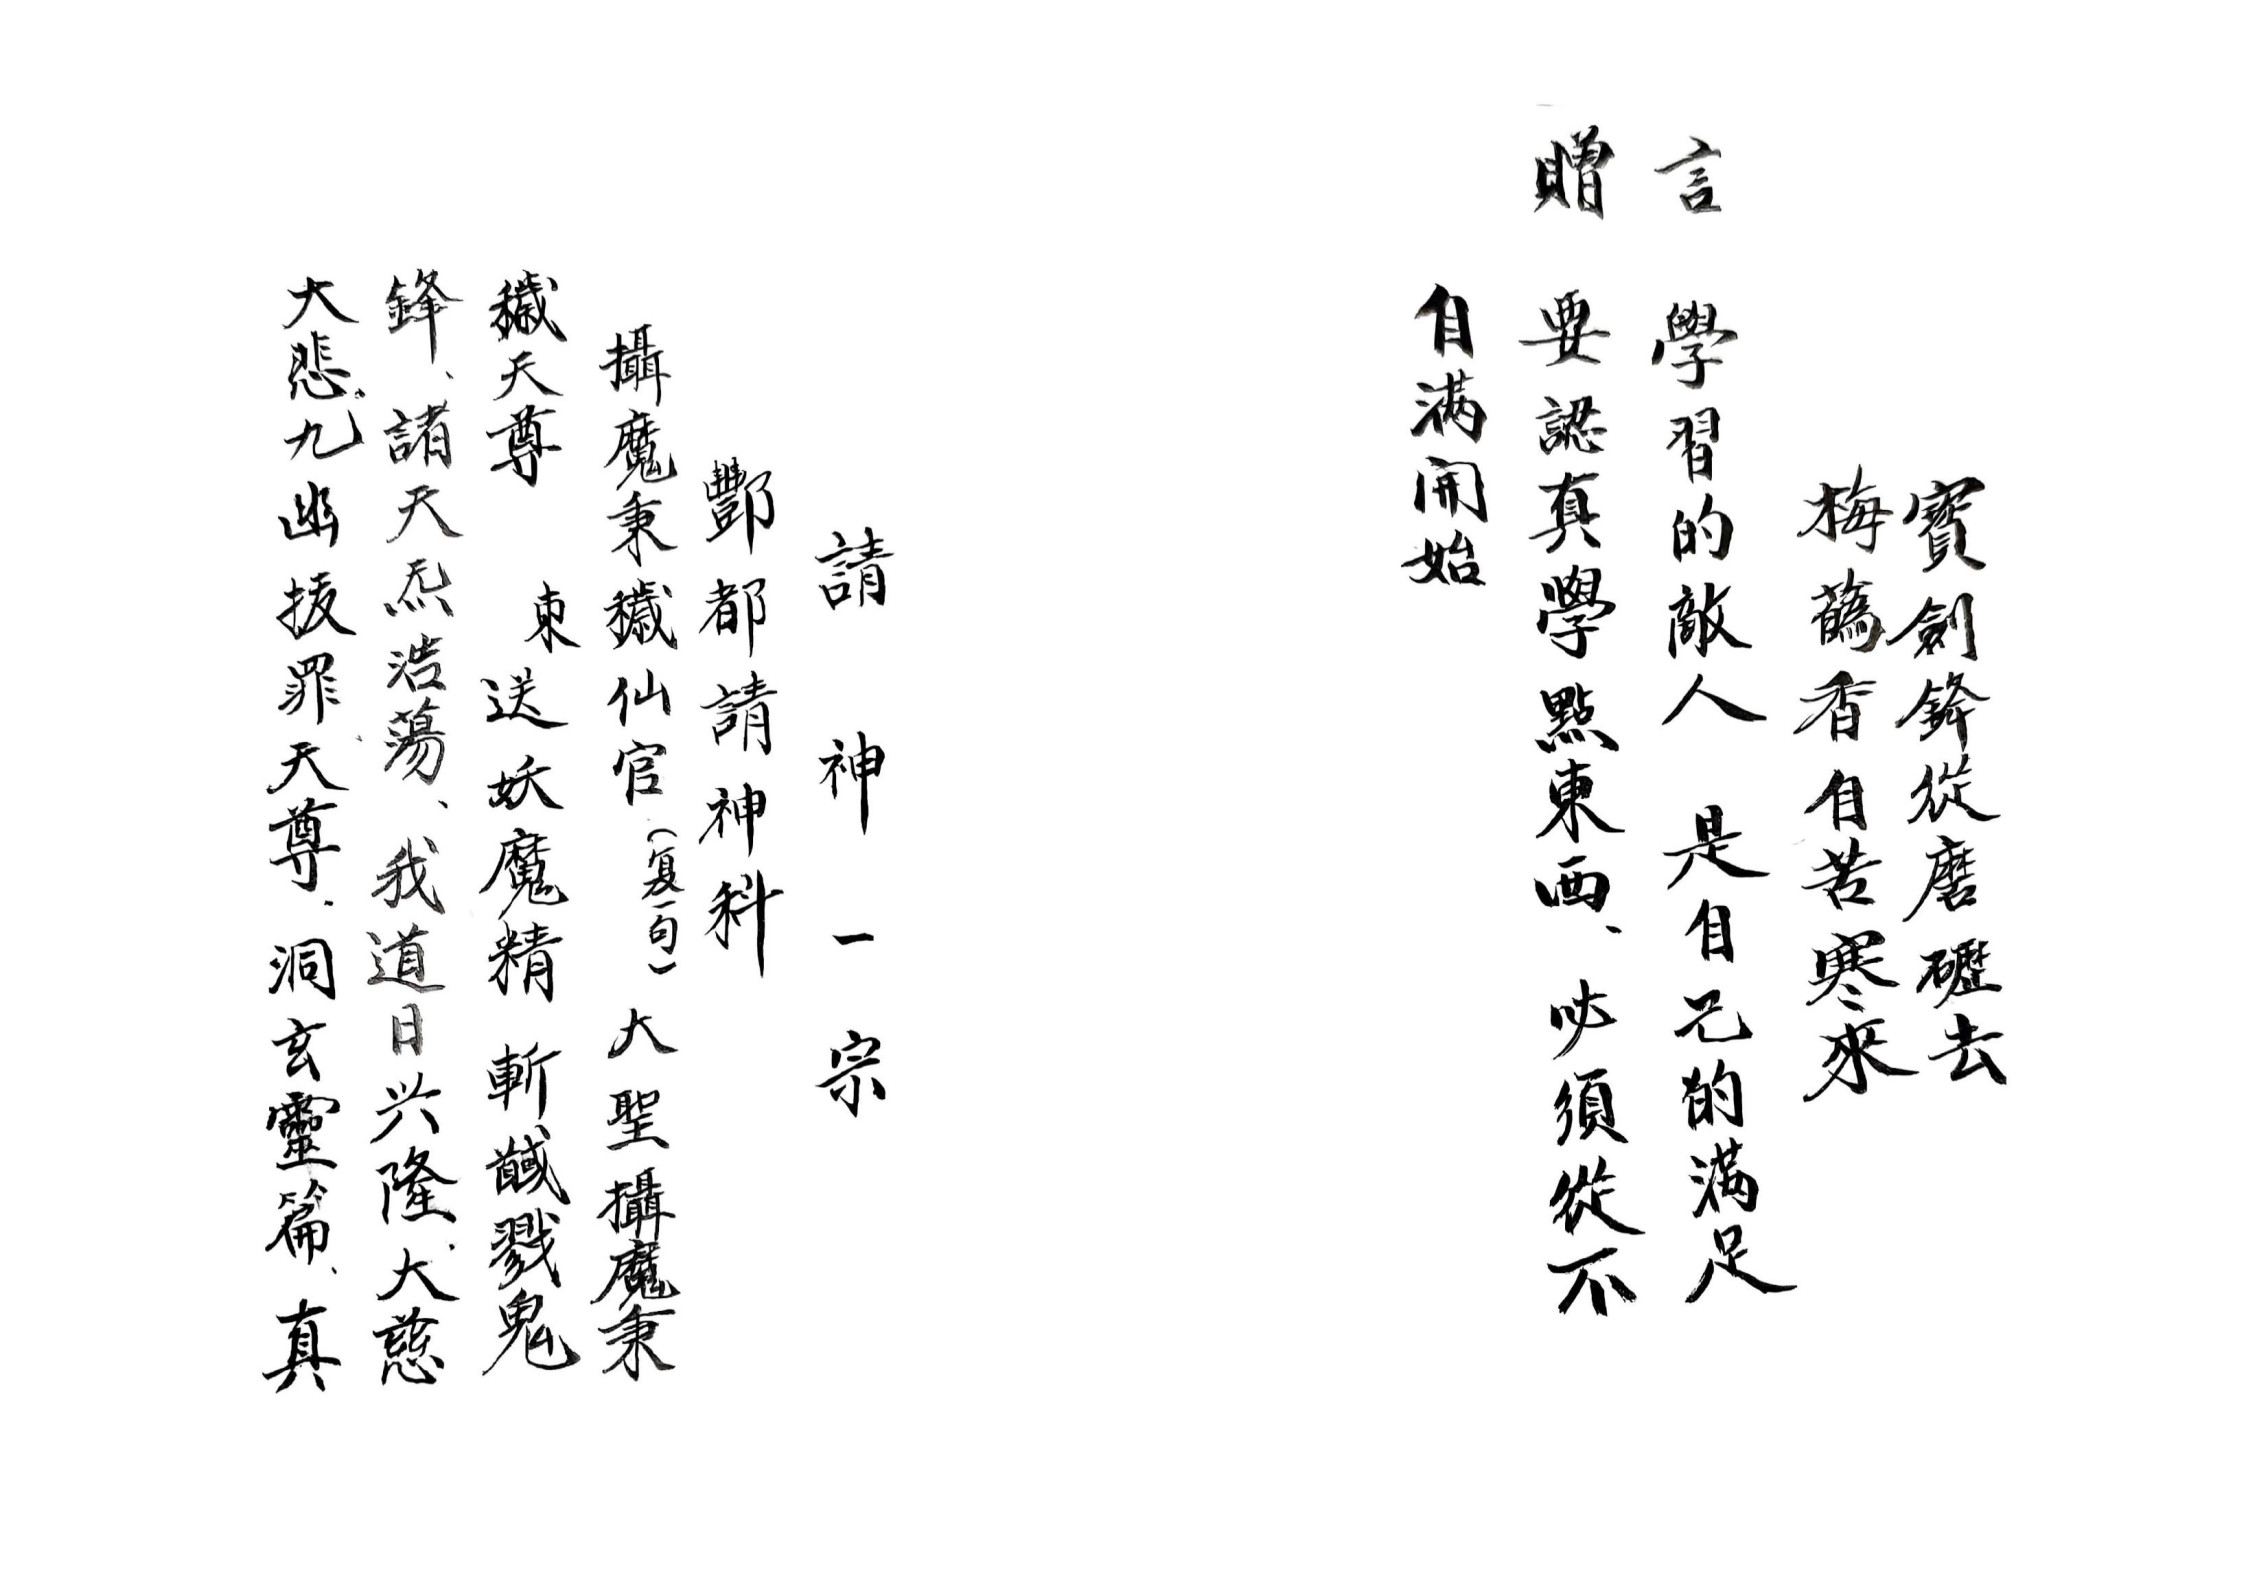 寳劍鋒從磨礰去
梅蘤香自苦寒來
言 學習的敵人 是自己的滿足
贈 要認真學點東西、必須從不
自滿開始
請神一宗
酆都請神科
攝魔秉穢仙官(复一句) 大聖攝魔秉
穢天尊 東送妖魔精 斬馘戮鬼
鋒、諸天炁浩蕩、我道日兴隆、大慈
大悲、九幽拔罪天尊、洞玄靈篇、真